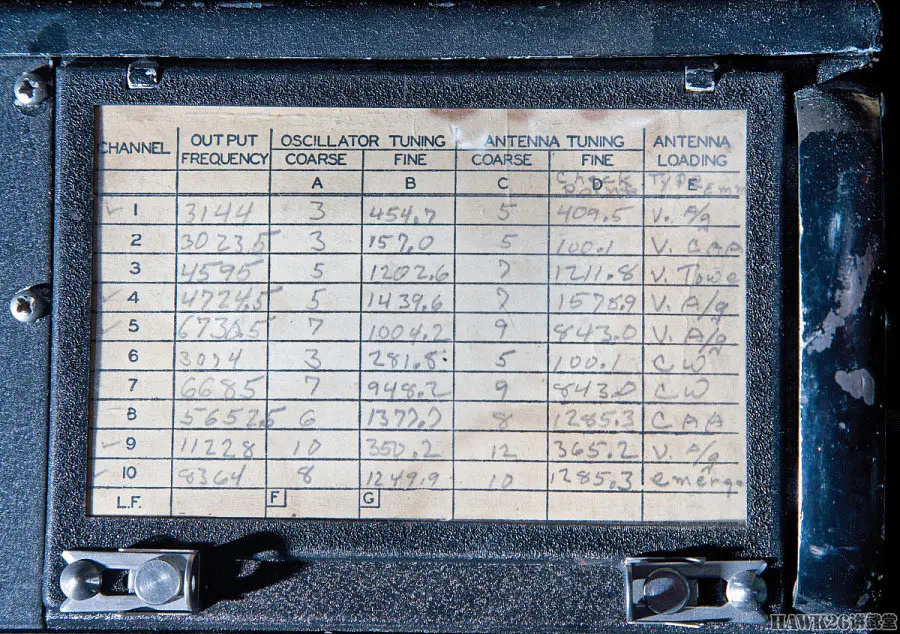 CHANNEL OUTPUT FREQUENCY OSCILLATOR TUNING ANTENNA TUNING ANTENNA LOADING
COARSE FINE COARSE FINE
A B C Check Points D Type Emm E
1 3144 3 454.7 5 409.5 V. A/g
2 3023.5 3 157.0 5 100.1 V. CAA
3 4595 5 1202.6 7 1211.8 V. Towe
4 4724.5 5 1439.6 7 1578.9 V. A/g
5 6730.5 7 1004.2 9 843.0 V. A/g
6 3094 3 281.8 5 100.1 CW
7 6685 7 948.2 9 843.0 CW
8 5652.5 6 1377.7 8 1285.3 CAA
9 11228 10 350.2 12 365.2 V. A/g
10 8364 8 1249.9 10 1285.3 emerge
L.F. F G
HAWK26